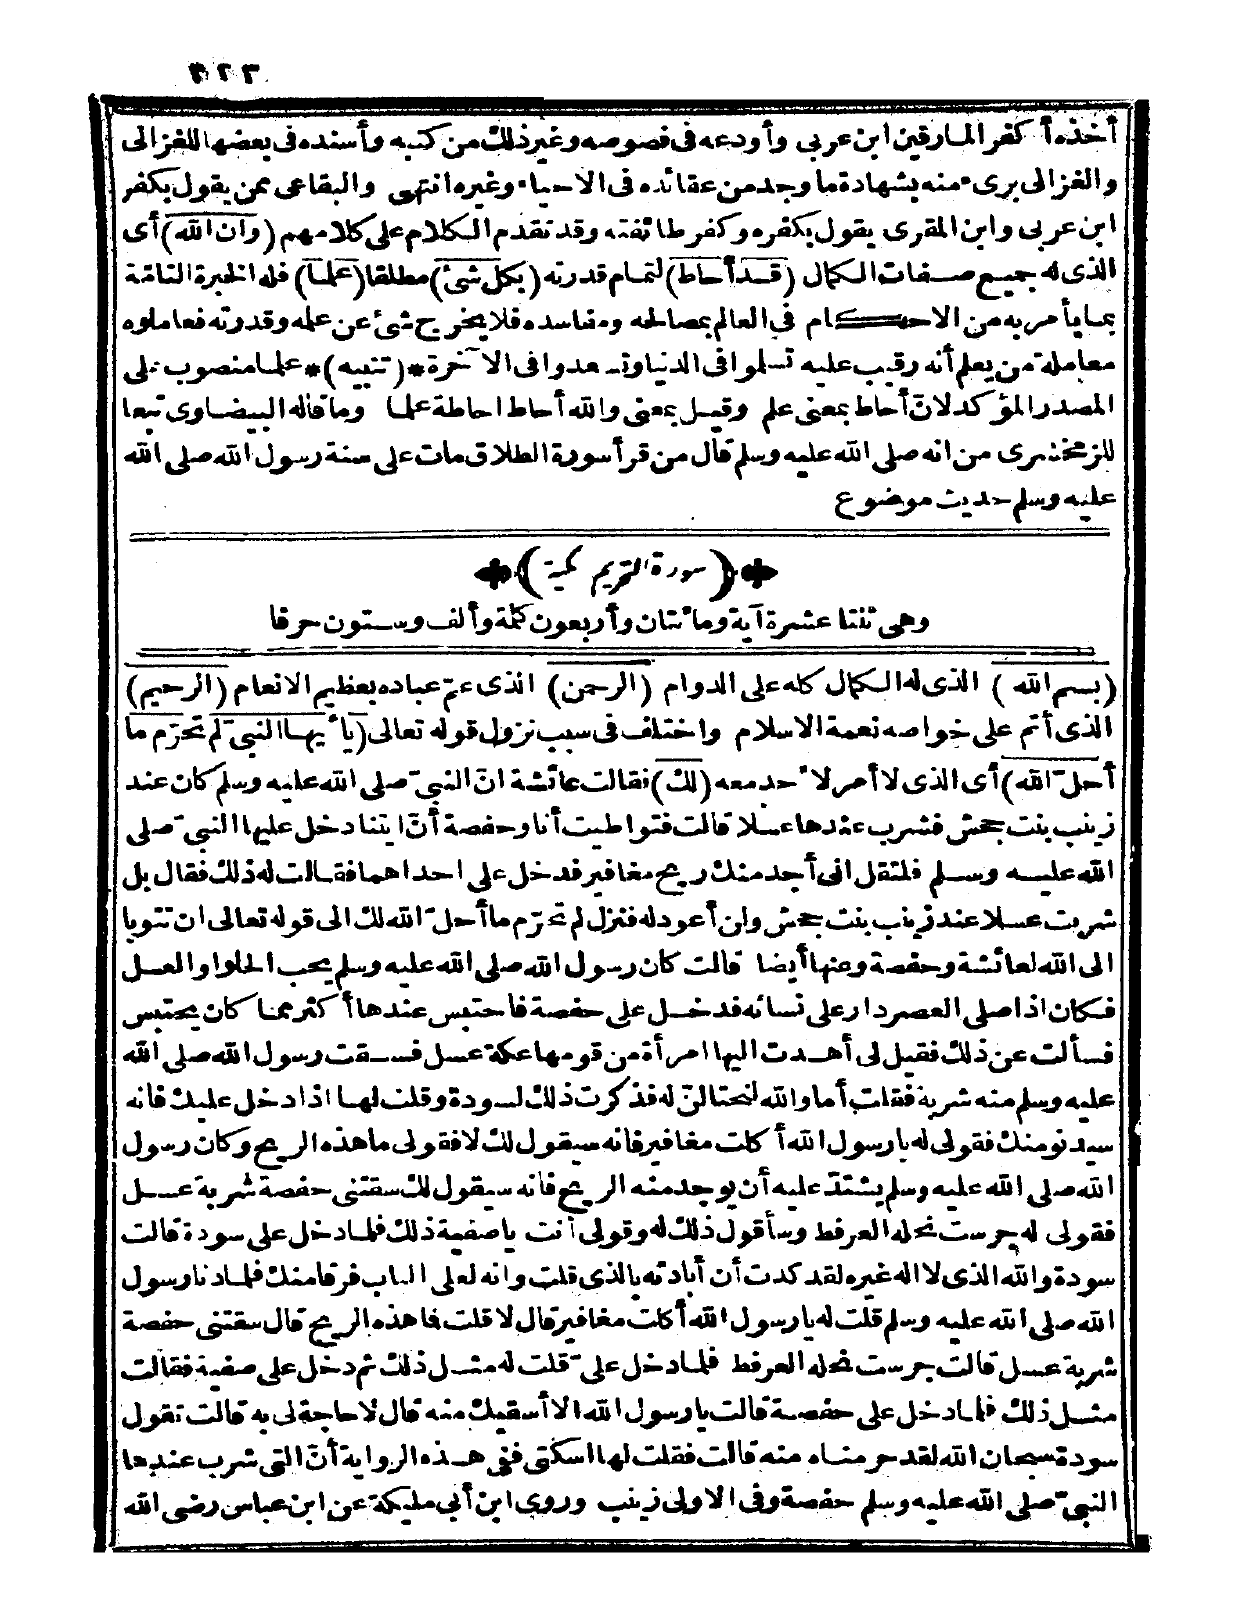 ٣٢٣
أخذه أكفر المارقين ابن عربى وأودعه فى فصوصه وغير ذلك من كتبه وأسنده فى بعضها للغزالى
والغزالى برىء منه بشهادة ما وجد من عقائده فى الاحياء وغيره انتهى والبقاعى ممن يقول بكفر
ابن عربى وابن المقرى يقول بكفره وكفر طائفته وقد تقدم الكلام على كلامهم (وان الله) أى
الذى له جميع صفات الكمال (قد أحاط) لتمام قدرته (بكل شئ) مطلقا (علما) فله الخبرة التامّة
بما يأمر به من الاحكام فى العالم بمصالحه ومفاسده فلا يخرج شئ عن علمه وقدرته فعاملوه
معاملة من يعلم أنه رقيب عليه تسلموا فى الدنيا وتسعدوا فى الآخرة *(تنبيه)* علما منصوب على
المصدر المؤكد لانّ أحاط بمعنى علم وقيل بمعنى والله أحاط احاطة علما وما قاله البيضاوى تبعا
للزمخشرى من انه صلى الله عليه وسلم قال من قرأ سورة الطلاق مات على سنة رسول الله صلى الله
عليه وسلم حديث موضوع
(سورة التحريم مكية)
وهى ثنتا عشرة آية ومائتان وأربعون كلمة وألف وستون حرفا
(بسم الله) الذى له الكمال كله على الدوام (الرحمن) الذى عمّ عباده بعظيم الانعام (الرحيم)
الذى أتم على خواصه نعمة الاسلام واختلف فى سبب نزول قوله تعالى (يا أيها النبىّ لم تحرّم ما
أحلّ الله) أى الذى لا أمر لاحد معه (لك) فقالت عائشة انّ النبىّ صلى الله عليه وسلم كان عند
زينب بنت جحش فشرب عندها عسلا قالت فتواطيت أنا وحفصة أنّ ايتنا دخل عليها النبىّ صلى
الله عليه وسلم فلتقل انى أجد منك ريح مغافير فدخل على احداهما فقالت له ذلك فقال بل
شربت عسلا عند زينب بنت جحش وان أعود له فنزل لم تحرّم ما أحلّ الله لك الى قوله تعالى ان تتوبا
الى الله لعائشة وحفصة وعنها أيضا قالت كان رسول الله صلى الله عليه وسلم يحب الحلوا والعسل
فكان اذا صلى العصر دار على نسائه فدخل على حفصة فاحتبس عندها أكثر مما كان يحتبس
فسألت عن ذلك فقيل لى أهدت اليها امرأة من قومها عكة عسل فسقت رسول الله صلى الله
عليه وسلم منه شربة فقلت أما والله لنحتالنّ له فذكرت ذلك لسودة وقلت لها اذا دخل عليك فانه
سيدنو منك فقولى له يا رسول الله أكلت مغافير فانه سيقول لك لا فقولى ما هذه الريح وكان رسول
الله صلى الله عليه وسلم يشتدّ عليه أن يوجد منه الريح فانه سيقول لك سقتنى حفصة شربة عسل
فقولى له جرست نحله العرفط وسأقول ذلك له وقولى أنت يا صفية ذلك فلما دخل على سودة قالت
سودة والله الذى لا اله غيره لقد كدت أن أبادئه بالذى قلت وانه لعلى الباب فرقا منك فلما دنا رسول
الله صلى الله عليه وسلم قلت له يا رسول الله أكلت مغافير قال لا قلت فما هذه الريح قال سقتنى حفصة
شربة عسل قالت جرست نحله العرفط فلما دخل علىّ قلت له مثل ذلك ثم دخل على صفية فقالت
مثل ذلك فلما دخل على حفصة قالت يا رسول الله الا أسقيك منه قال لا حاجة لى به قالت تقول
سودة سبحان الله لقد حرمناه منه قالت فقلت لها اسكتى ففى هذه الرواية أنّ التى شرب عندها
النبىّ صلى الله عليه وسلم حفصة وفى الاولى زينب وروى ابن أبى مليكة عن ابن عباس رضى الله